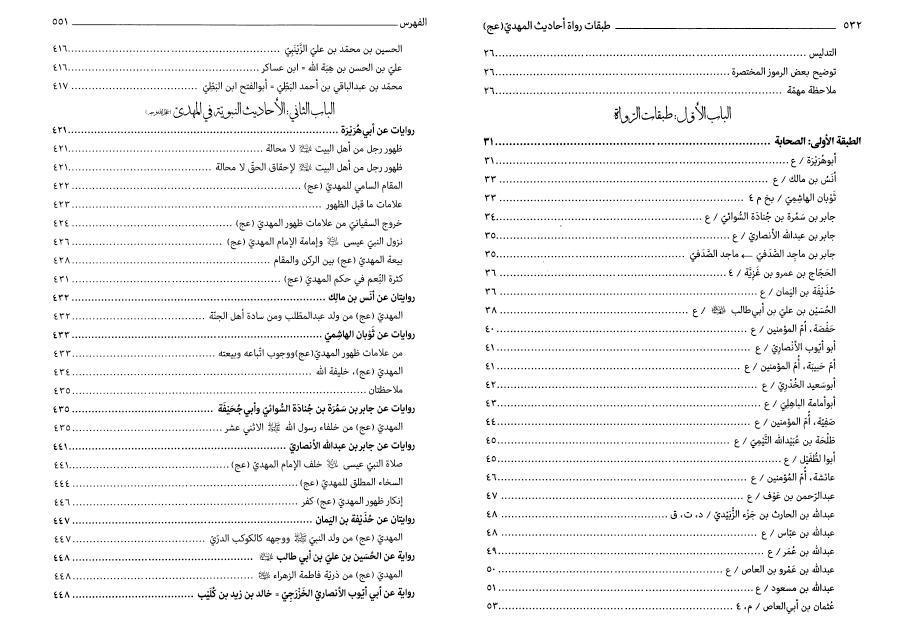 ٥٣٢ طبقات رواة أحاديث المهديّ (عج)
التدليس ٢٦
توضيح بعض الرموز المختصرة ٢٦
ملاحظة مهمّة ٢٦
الباب الأول: طبقات الرّواة
الطبقة الأولى: الصحابة ٣١
أبوهُرَيْرَة / ع ٣١
أنَسُ بن مالك / ع ٣٣
ثَوْبان الهاشِمِيّ / بخ م ٤ ٣٣
جابر بن سَمُرة بن جُنادَة السُّوائيّ / ع ٣٤
جابر بن عبدالله الأنصاريّ / ع ٣٥
جابر بن ماجِد الصَّدَفيّ ← ماجد الصَّدَفيّ ٣٥
الحَجّاج بن عمرو بن غَزِيَّة / ٤ ٣٦
حُذَيْفَة بن اليَمان / ع ٣٦
الحُسَيْن بن عليّ بن أبي‌طالب / ع ٣٨
حَفْصَة، أمّ المؤمنين / ع ٤٠
أبو أيّوب الأنْصاريّ / ع ٤١
أمّ حَبيبَة، أُمّ المؤمنين / ع ٤١
أبوسَعيد الخُدْريّ / ع ٤٢
أبوأمامة الباهِليّ / ع ٤٣
صَفِيّة، أُمّ المؤمنين / ع ٤٤
طَلْحَة بن عُبَيْدالله التَّيْمِيّ / ع ٤٥
أبوا لطُّفَيْل / ع ٤٥
عائشة، أمّ المُؤمنين / ع ٤٦
عبدالرّحمن بن عَوْف / ع ٤٧
عبدالله بن الحارث بن جَزْء الزُّبَيْديّ / د، ت، ق ٤٨
عبدالله بن عبّاس / ع ٤٨
عبدالله بن عُمَر / ع ٤٩
عبدالله بن عَمْرو بن العاص / ع ٥٠
عبدالله بن مسعود / ع ٥١
عُثمان بن أبي‌العاص / م، ٤ ٥٣
الفهرس ٥٥١
الحسين بن محمّد بن عليّ الزَّيْنَبِيّ ٤١٦
عليّ بن الحسن بن هِبَة الله = ابن عساكر ٤١٦
محمّد بن عبدالباقي بن أحمد البَطّيّ = أبوالفتح ابن البَطّيّ ٤١٧
الباب الثاني: الأحاديث النبوية في المهديّ
روايات عن أبي‌هُرَيْرَة ٤٢١
ظهور رجل من أهل البيت لا محالة ٤٢١
ظهور رجل من أهل البيت لإحقاق الحقّ لا محالة ٤٢١
المقام السامي للمهديّ (عج) ٤٢٢
علامات ما قبل الظهور ٤٢٣
خروج السفيانيّ من علامات ظهور المهديّ (عج) ٤٢٤
نزول النبيّ عيسى وإمامة الإمام المهديّ (عج) ٤٢٦
بيعة المهديّ (عج) بين الركن والمقام ٤٢٨
كثرة النِّعم في حكم المهديّ (عج) ٤٣١
روايتان عن أنَس بن مالِك ٤٣٢
المهديّ (عج) من ولد عبدالمطّلب ومن سادة أهل الجنّة ٤٣٢
روايات عن ثَوْبان الهاشِميّ ٤٣٣
من علامات ظهور المهديّ(عج)ووجوب اتّباعه وبيعته ٤٣٣
المهديّ (عج)، خليفة الله ٤٣٤
ملاحظتان ٤٣٥
روايات عن جابر بن سَمُرَة بن جُنادَة السُّوائيّ وأبي جُحَيْفَة ٤٣٥
المهديّ (عج) من خلفاء رسول الله ﷺ الاثني عشر ٤٣٥
روايات عن جابر بن عبدالله الأنصاريّ ٤٤١
صلاة النبيّ عيسى خلف الإمام المهديّ (عج) ٤٤١
السخاء المطلق للمهديّ (عج) ٤٤٤
إنكار ظهور المهديّ (عج) كفر ٤٤٦
روايتان عن حُذَيْفَة بن اليَمان ٤٤٧
المهديّ (عج) من ولد النبيّ ﷺ ووجهه كالكوكب الدرّيّ ٤٤٧
رواية عن الحُسَين بن عليّ بن أبي طالب ٤٤٨
المهديّ (عج) من ذريّة فاطمة الزهراء ٤٤٨
رواية عن أبي أيّوب الأنصاريّ الخَزْرَجِيّ = خالد بن زيد بن كُلَيْب ٤٤٨